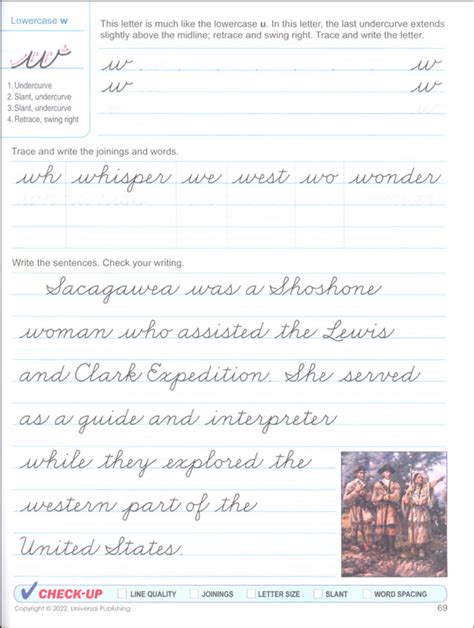 Lowercase w
This letter is much like the lowercase u. In this letter, the last undercurve extends
slightly above the midline; retrace and swing right. Trace and write the letter.
w
w w
w w
1. Undercurve
2. Slant, undercurve
3. Slant, undercurve
4. Retrace, swing right
Trace and write the joinings and words.
wh whisper we west wo wonder
Write the sentences. Check your writing.
Sacagawea was a Shoshone
woman who assisted the Lewis
and Clark Expedition. She served
as a guide and interpreter
while they explored the
western part of the
United States.
✓ CHECK-UP LINE QUALITY JOININGS LETTER SIZE SLANT WORD SPACING
Copyright © 2022, Universal Publishing 69